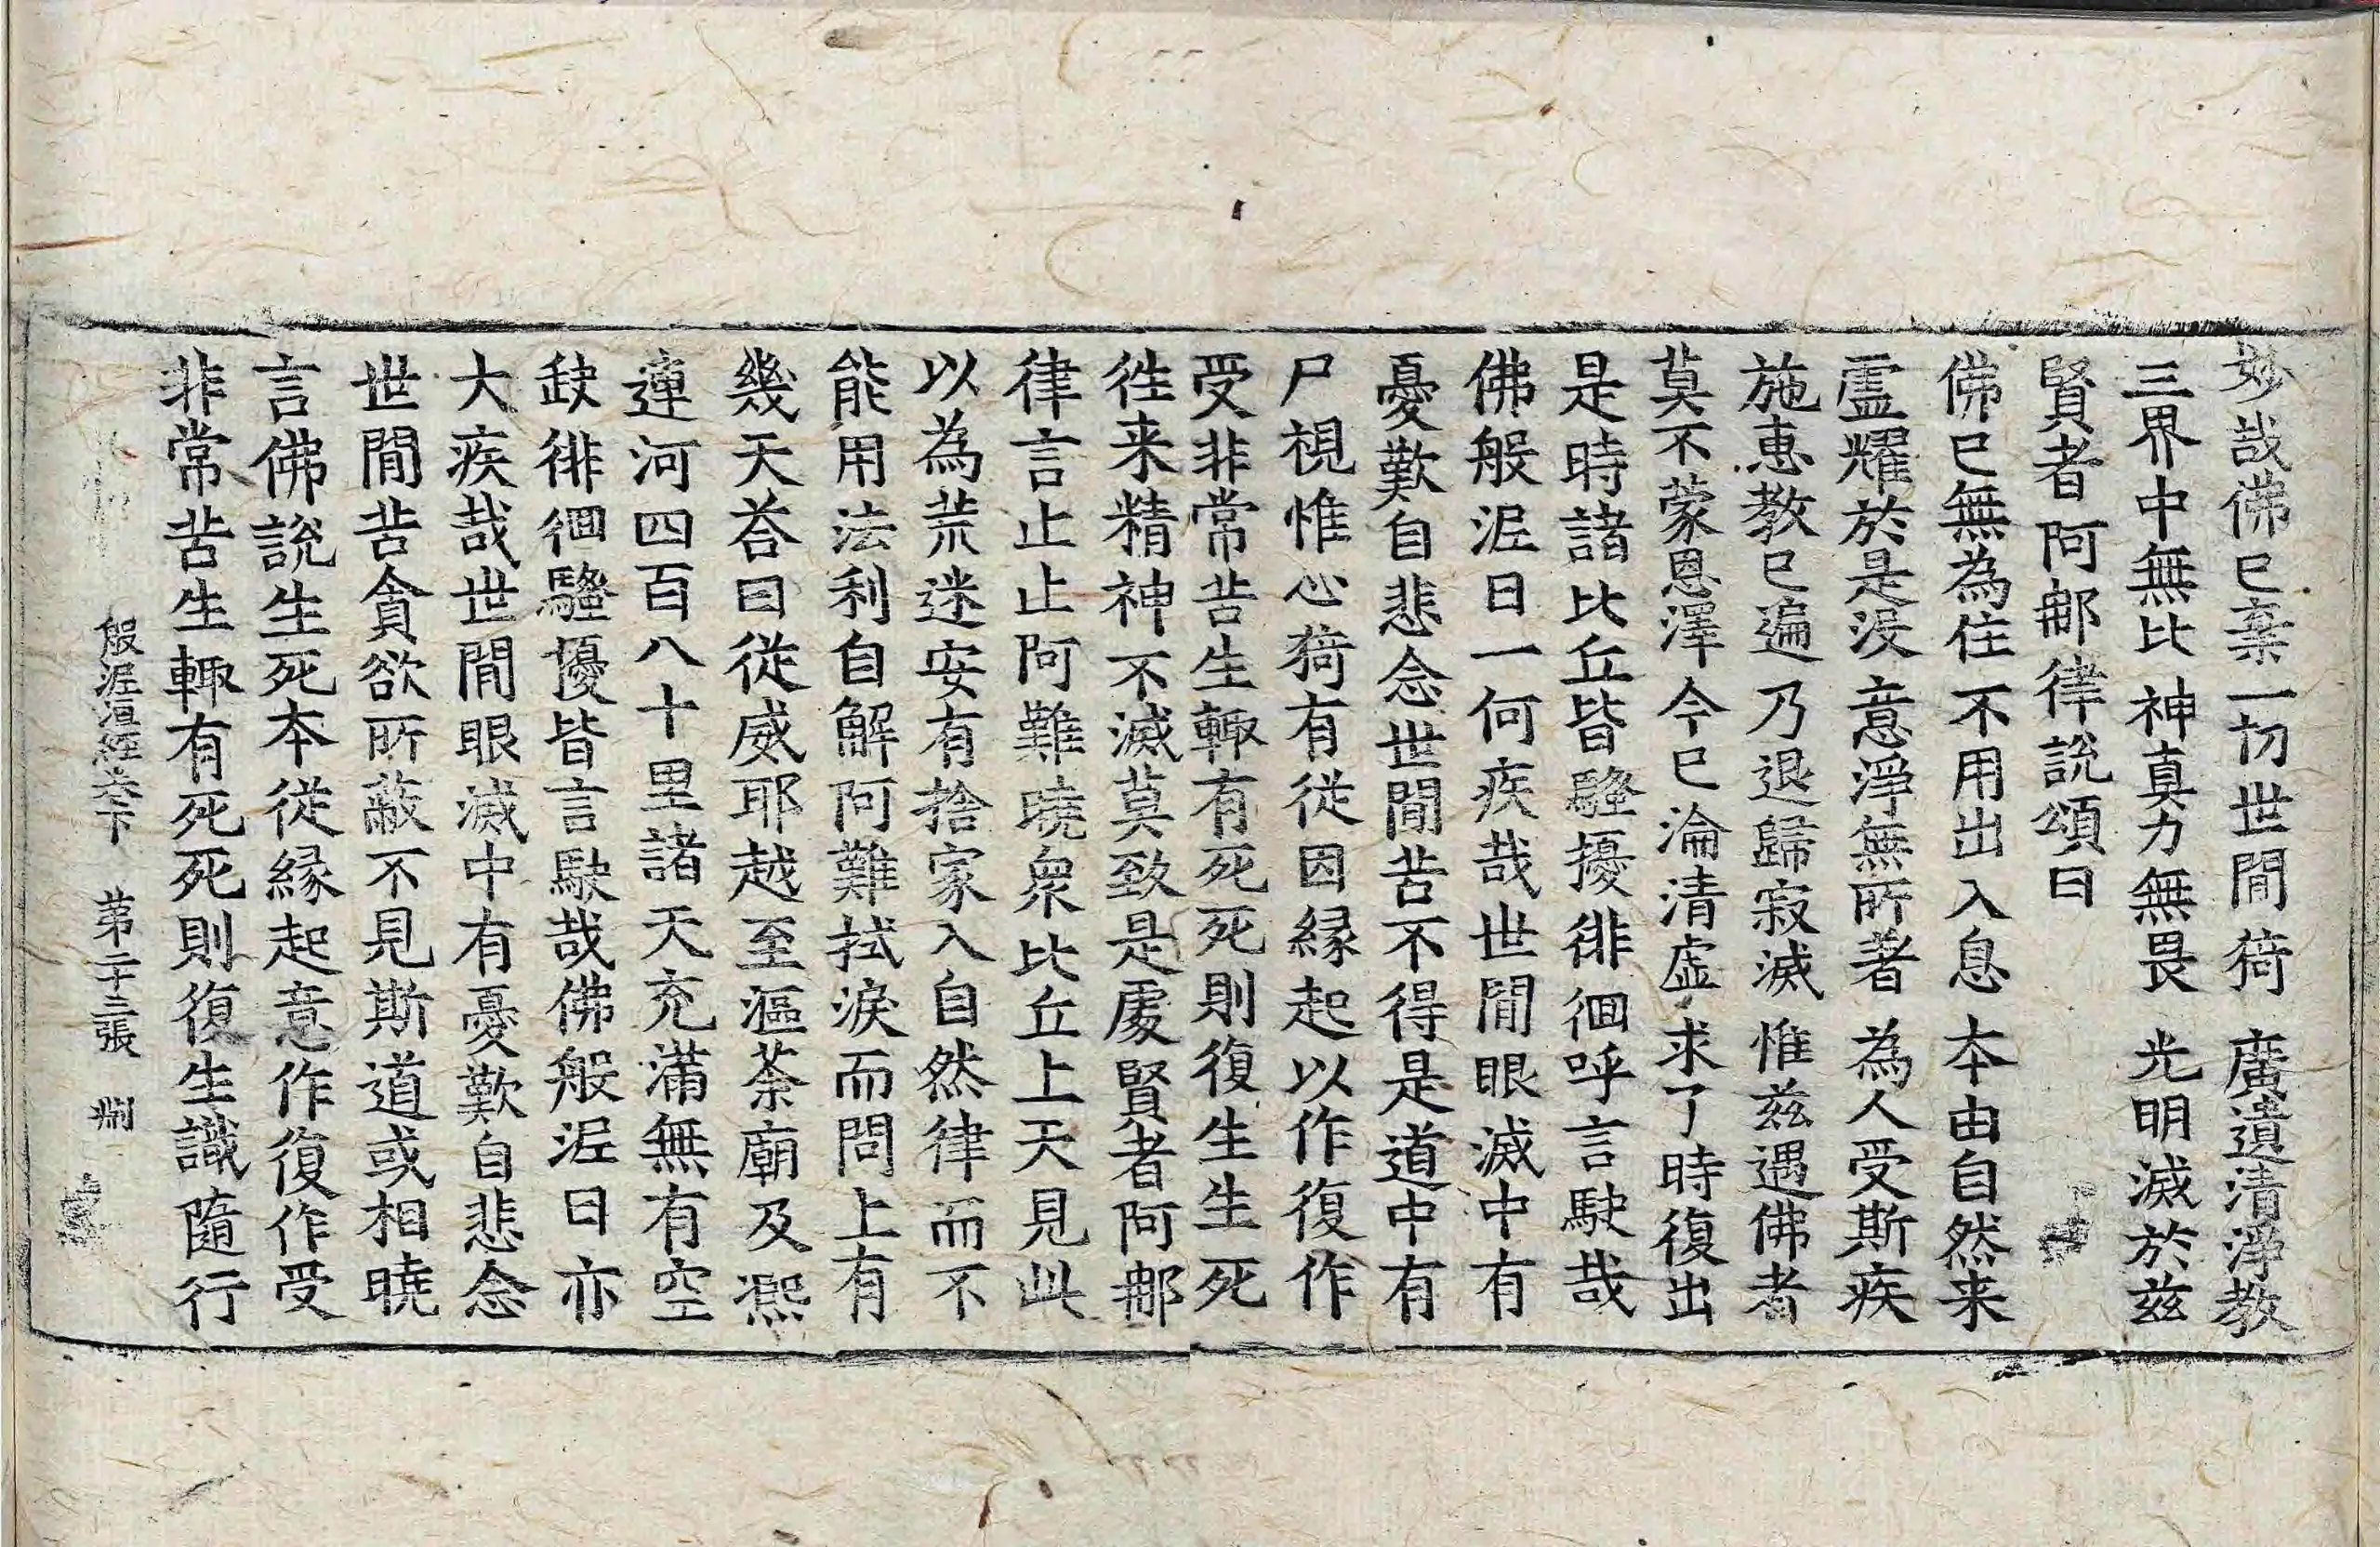 妙哉佛已棄一切世閒猗　廣遺清淨教
三界中無比　神真力無畏　光明滅於茲
賢者阿那律說頌曰
佛已無為住　不用出入息　本由自然来
靈耀於是沒　意淨無所著　為人受斯疾
施惠教已遍　乃退歸寂滅　惟茲遇佛者
莫不蒙恩澤　今已淪清虛　求了時復出
是時諸比丘皆騷擾徘徊呼言駃哉
佛般泥日一何疾哉世閒眼滅中有
憂歎自悲念世閒苦不得是道中有
尸視惟心猗有從因緣起以作復作
受非常苦生輙有死死則復生生死
徃来精神不滅莫致是處賢者阿那
律言止止阿難曉衆比丘上天見此
以為荒迷安有捨家入自然律而不
能用法利自解阿難拭淚而問上有
幾天荅曰從威耶越至漚荼廟及凞
連河四百八十里諸天充滿無有空
缺徘徊騷擾皆言駃哉佛般泥日亦
大疾哉世閒眼滅中有憂歎自悲念
世閒苦貪欲所蔽不見斯道或相曉
言佛說生死本從緣起意作復作受
非常苦生輙有死死則復生識隨行
般泥洹經卷下　第二十三張　捌